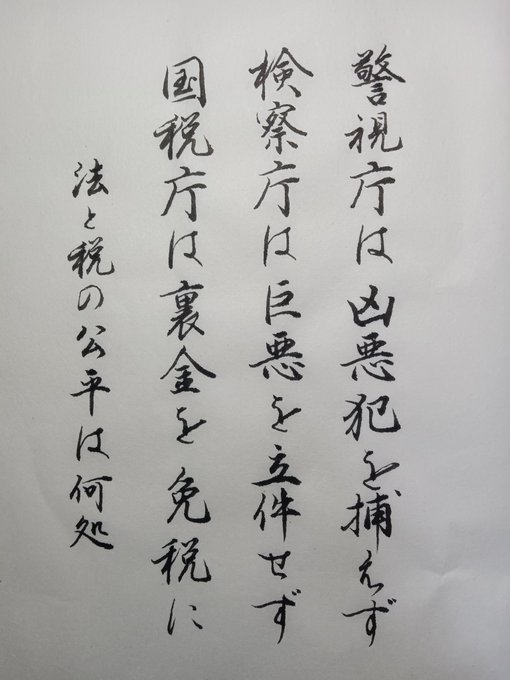 警視庁は凶悪犯を捕えず
検察庁は巨悪を立件せず
国税庁は裏金を免税に
法と税の公平は何処